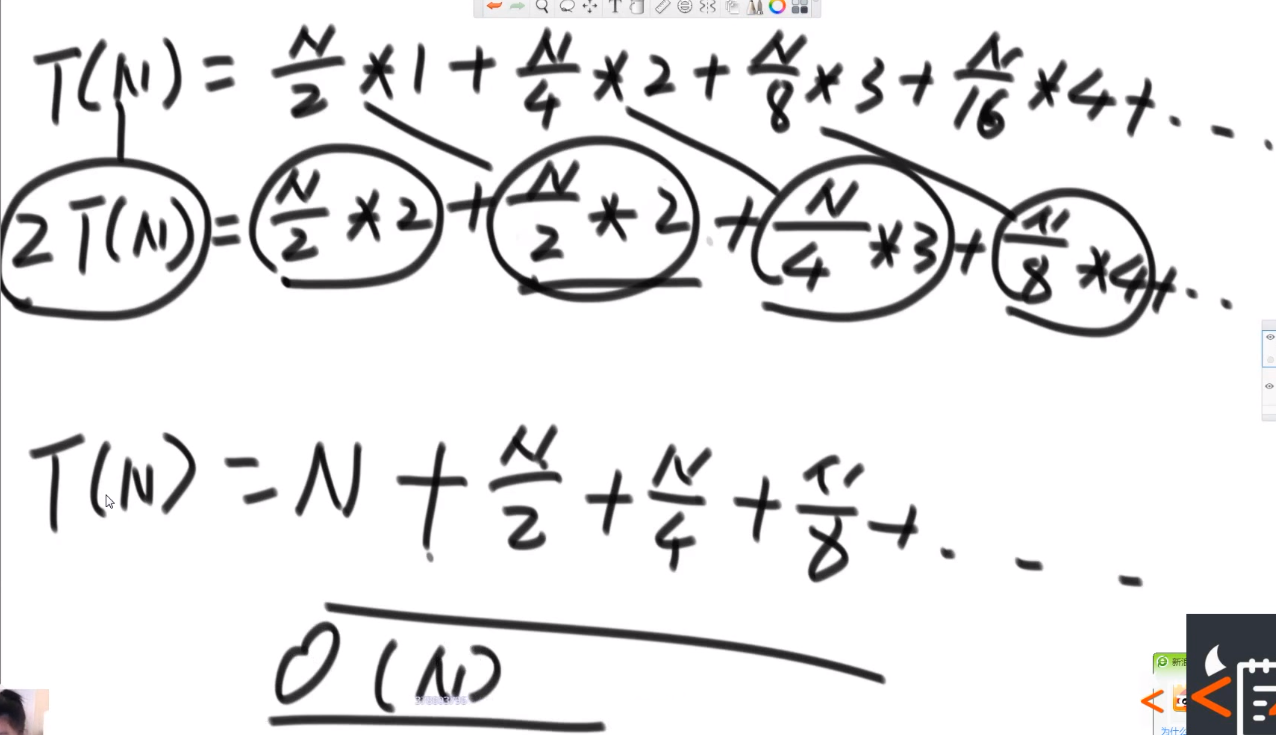 T(N) = N/2 * 1 + N/4 * 2 + N/8 * 3 + N/16 * 4 + ...
2 T(N) = N/2 * 2 + N/2 * 2 + N/4 * 3 + N/8 * 4 + ...
T(N) = N + N/2 + N/4 + N/8 + ...
O(N)
为什么